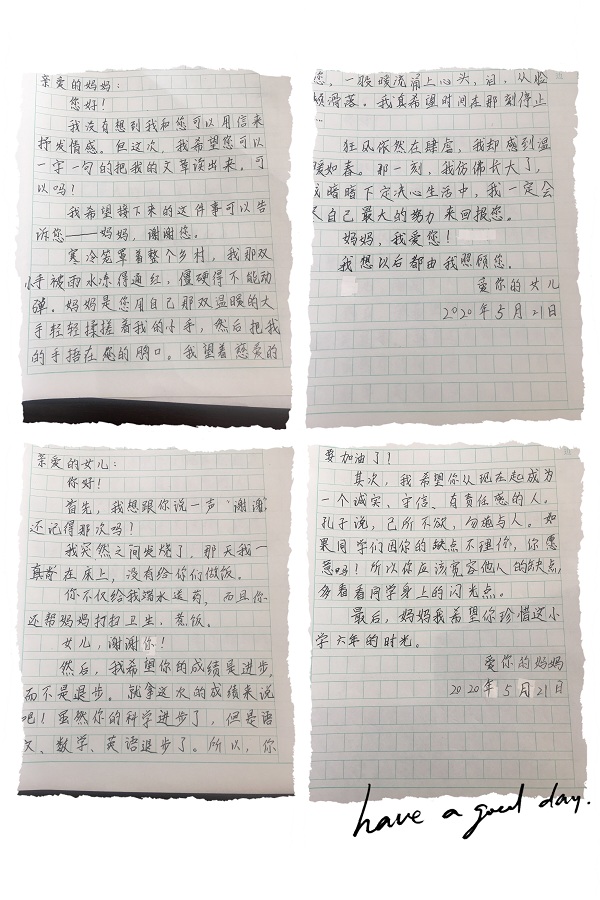 亲爱的妈妈：
您好！
我没有想到我和您可以用信来
抒发情感。但这次，我希望您可以
一字一句的把我的文章读出来。可
以吗？
我希望接下来的这件事可以告
诉您——妈妈，谢谢您。
寒冷笼罩着整个乡村，我那双
小手被雨水冻得通红，僵硬得不能动
弹。妈妈是您用自己那双温暖的大
手轻轻揉搓着我的小手，然后把我
的手捂在您的胸口。我望着慈爱的
您，一股暖流涌上心头，泪，从脸
颊滑落。我真希望时间在那刻停止
…
狂风依然在肆虐，我却感到温
暖如春。那一刻，我仿佛长大了，
我暗暗下定决心生活中，我一定会
自己最大的努力来回报您。
妈妈，我爱您！
我想以后都由我照顾您。
爱你的女儿
2020年5月21日
亲爱的女儿：
你好！
首先，我想跟你说一声“谢谢”
还记得那次吗？
我突然之间发烧了，那天我一
直 在床上，没有给你们做饭。
你不仅给我端水送药，而且你
还帮妈妈打扫卫生、煮饭。
女儿，谢谢你！
然后，我希望你的成绩是进步，
而不是退步。就拿这次的成绩来说
吧！虽然你的科学进步了，但是语
文、数学、英语退步了。所以，你
要加油了！
其次，我希望你从现在起成为
一个诚实、守信、有责任感的人。
孔子说，己所不欲，勿施与人。如
果同学们因你的缺点不理你，你愿
意吗！所以你应该宽容他人的缺点，
多看看同学身上的闪光点。
最后，妈妈我希望你珍惜这小
学六年的时光。
爱你的妈妈
2020年5月21日
have a good day.